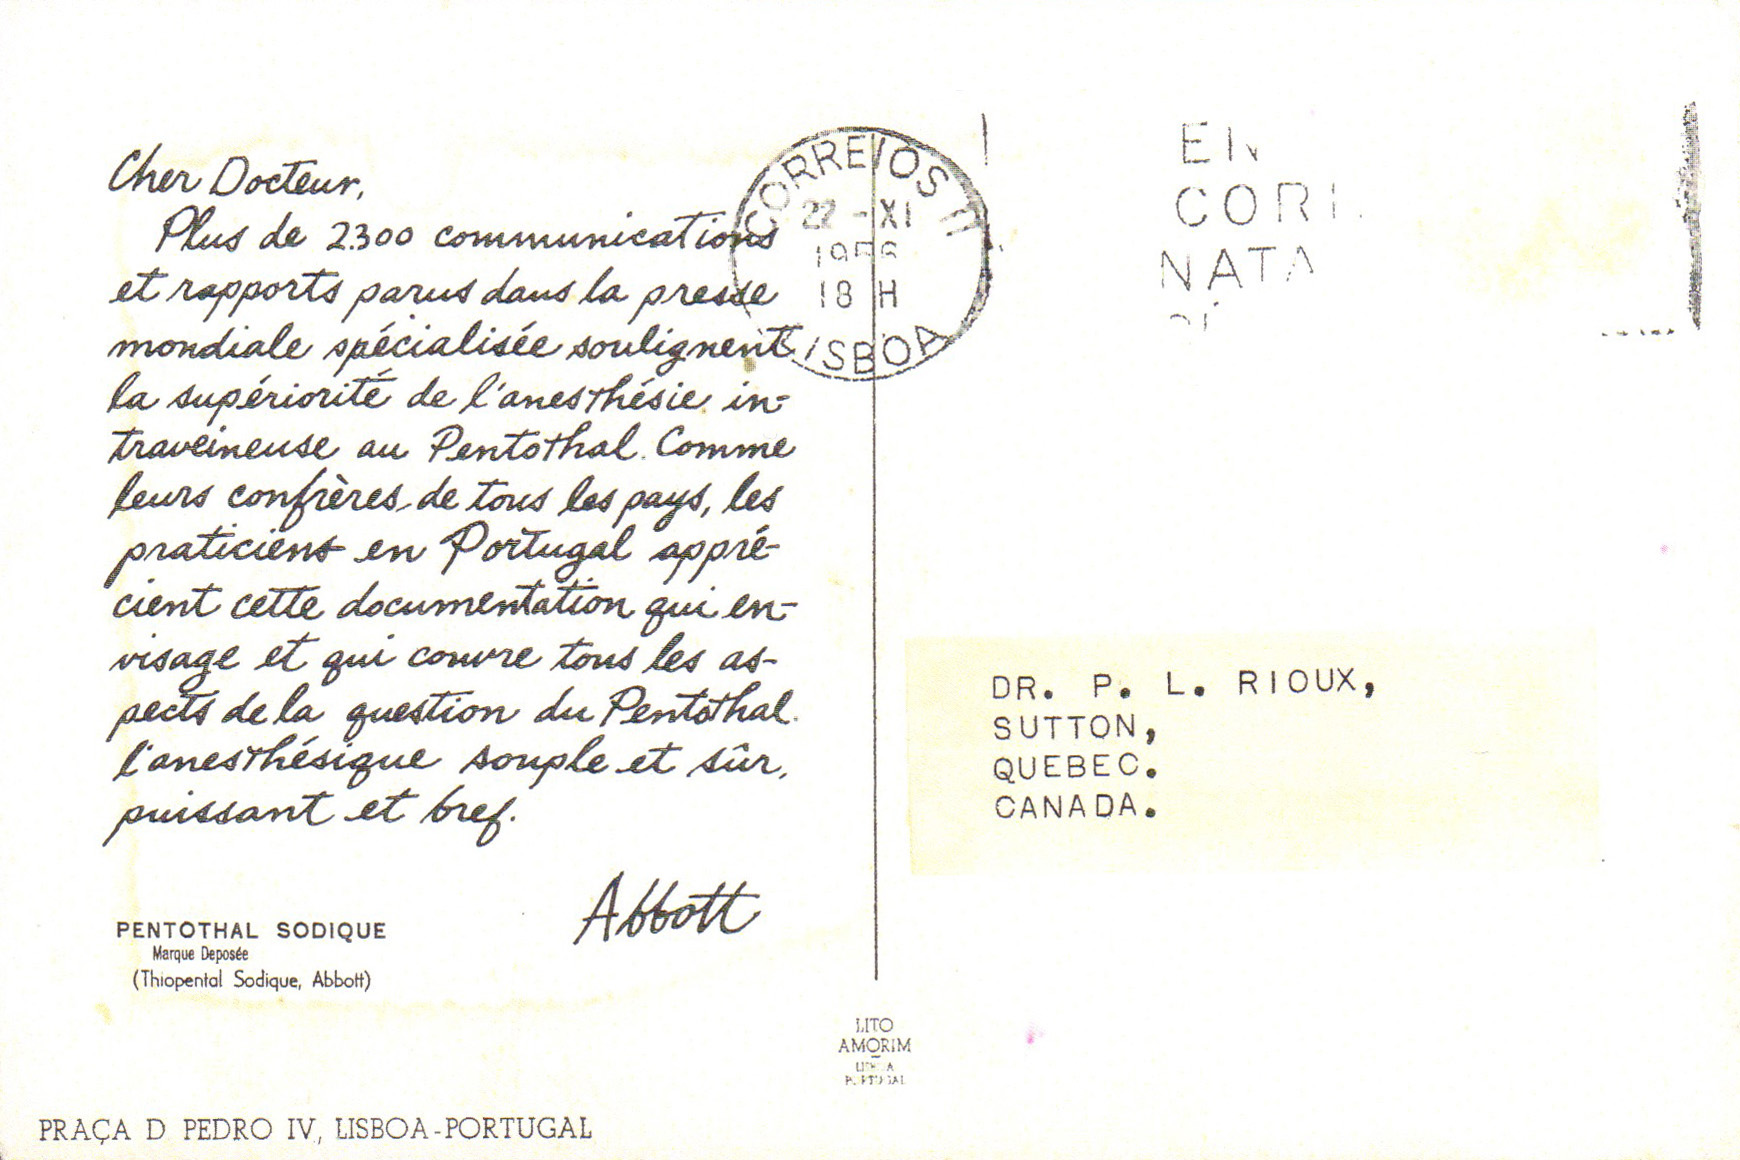 Cher Docteur,
Plus de 2300 communications
et rapports parus dans la presse
mondiale spécialisée soulignent
la supériorité de l'anesthésie in-
traveineuse au Pentothal. Comme
leurs confrères de tous les pays, les
praticiens en Portugal appré-
cient cette documentation qui en-
visage et qui couvre tous les as-
pects de la question du Pentothal.
l'anesthésique souple et sûr,
puissant et bref.
Abbott
PENTOTHAL SODIQUE
Marque Deposée
(Thiopental Sodique, Abbott)
PRAÇA D PEDRO IV, LISBOA-PORTUGAL
CORREIOS
22-XI
18 H
LISBOA
EN
NATA
LITO
AMORIM
LISBOA
PORTUGAL
DR. P. L. RIOUX,
SUTTON,
QUEBEC.
CANADA.